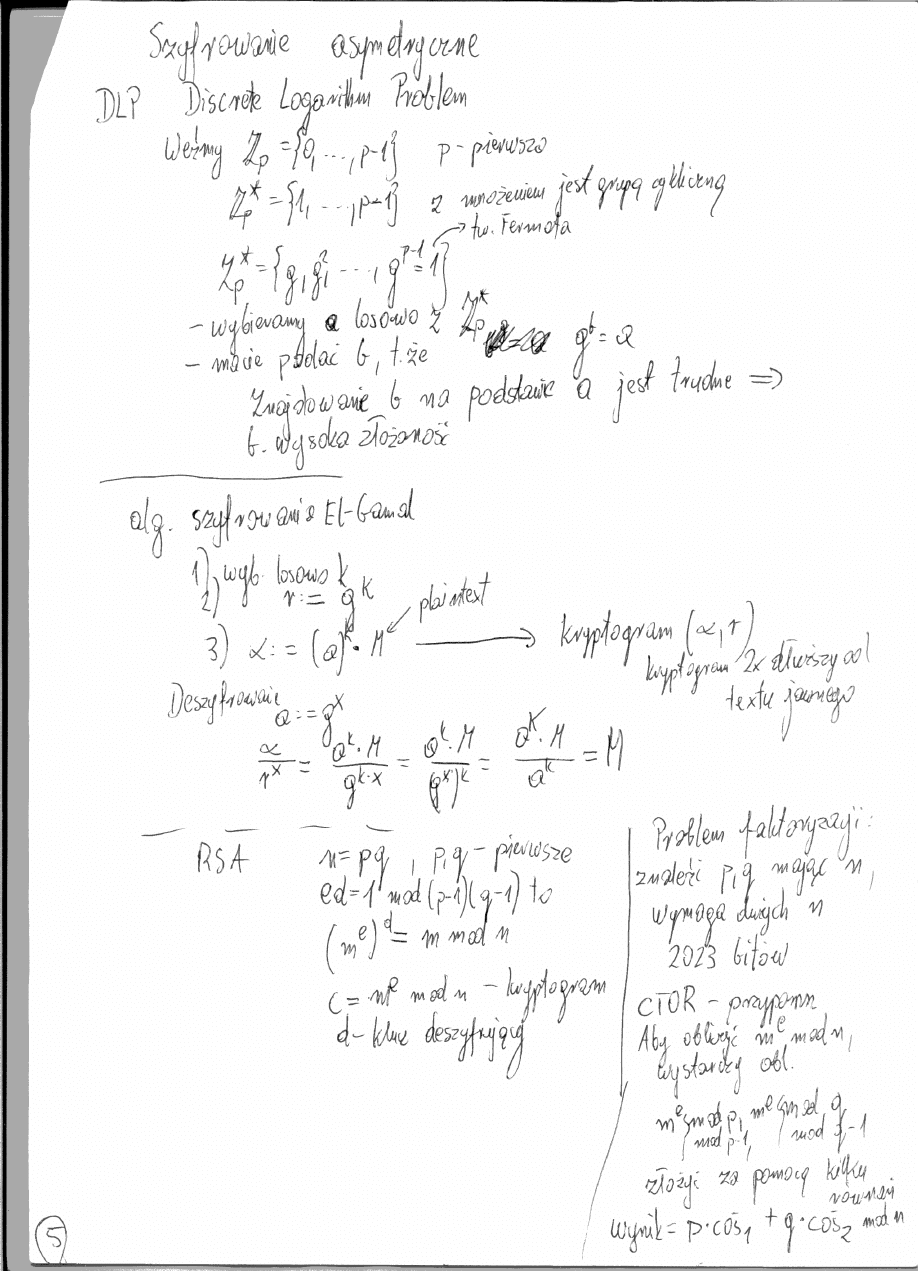 Szyfrowanie asymetryczne
DLP Discrete Logarithm Problem
Weźmy Z_p = {0, ..., p-1} p - pierwsza
Z_p^* = {1, ..., p-1} z mnożeniem jest grupą cykliczną
→ tw. Fermata
Z_p^* = {g, g^2, ..., g^{p-1} = 1}
- wybieramy a losowo z Z_p^*
- macie podać b, t.że g^b = a
Znajdowanie b na podstawie a jest trudne ⇒
b. wysoka złożoność
alg. szyfrowania El-Gamal
1) wyb. losowo k
2) r := g^k
3) α := (a)^k · M ← plaintext → kryptogram (α, r)
kryptogram 2x dłuższy od
textu jawnego
Deszyfrowanie
a := g^x
α / r^x = a^k · M / g^{k·x} = a^k · M / (g^x)^k = a^k · M / a^k = M
RSA n = pq, p, q - pierwsze
ed = 1 mod (p-1)(q-1) to
(m^e)^d = m mod n
C = m^e mod n - kryptogram
d - klucz deszyfrujący
Problem faktoryzacji:
znaleźć p, q mając n,
wymaga dużych n
2023 bitów
CTOR - przypomn
Aby obliczyć m^e mod n,
wystarczy obl.
m^e mod p, m^e mod q
mod p-1, mod q-1
złożyć za pomocą kilku
równań
wynik = p · coś_1 + q · coś_2 mod n
5